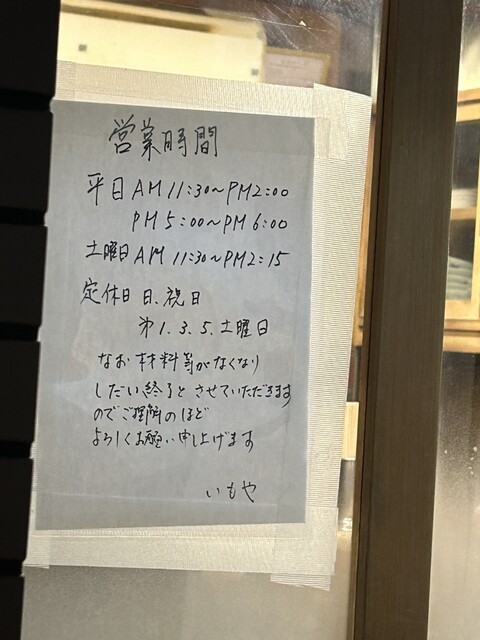 営業時間
平日 AM 11:30〜PM2:00
PM 5:00〜PM 6:00
土曜日 AM 11:30〜PM2:15
定休日 日、祝日
第1.3.5.土曜日
なお材料等がなくなり
しだい終了とさせていただきます
のでご理解のほど
よろしくお願い申し上げます
いもや